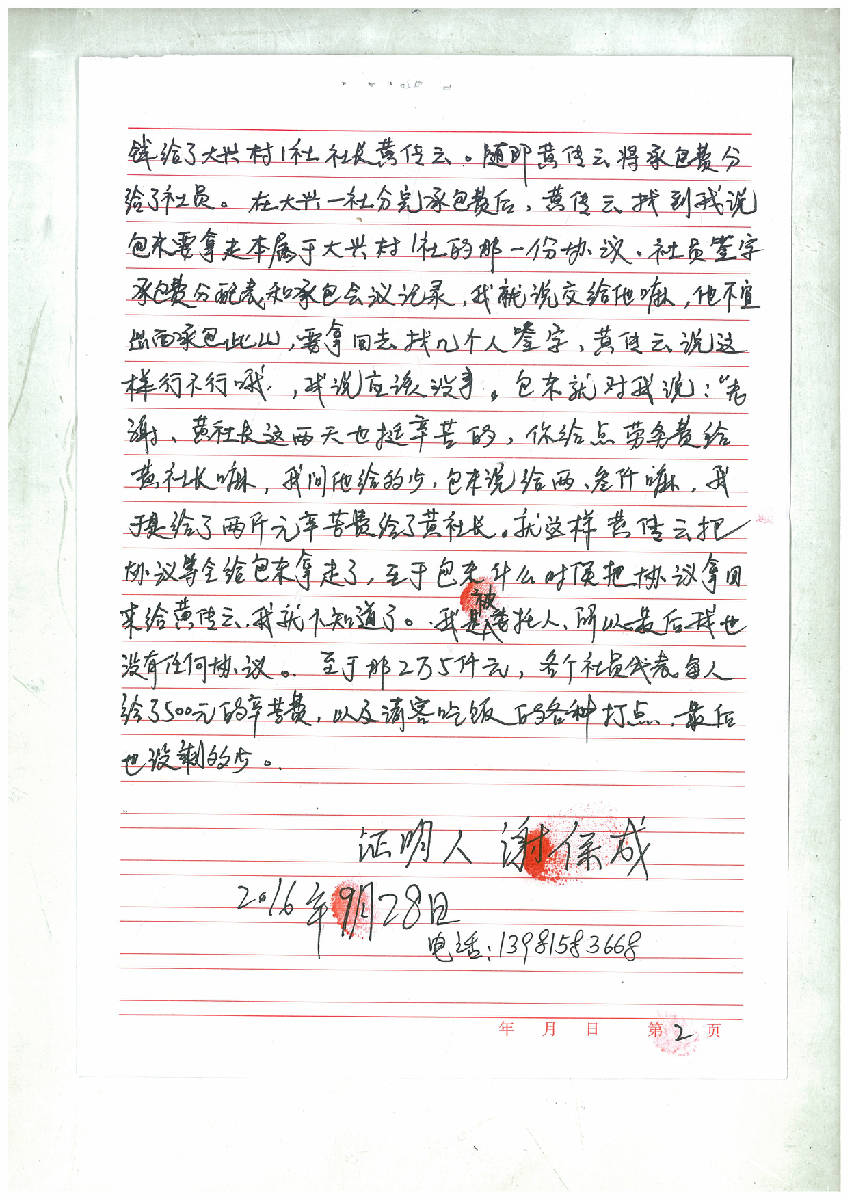 钱给了大兴村1社社长黄传云。随即黄传云将承包费分
给了社员。在大兴一社分完承包费后，黄传云找到我说
包来要拿走本属于大兴村1社的那一份协议、社员签字
承包费分配表和承包会议记录，我就说交给他嘛，他不宜
出面承包此山，要拿回去找几个人签字，黄传云说这
样行不行哦，我说应该没事。包来就对我说：“老
谢、黄社长这两天也挺辛苦的，你给点劳务费给
黄社长嘛，我问他给好多，包来说给两、叁仟嘛，我
于是给了两仟元辛苦费给了黄社长。就这样黄传云把
协议等全给包来拿走了，至于包来什么时候把协议拿回
来给黄传云，我就不知道了。我是被委托人，所以最后我也
没有任何协议。至于那2万5仟元，各个社员代表每人
给了500元的辛苦费，以及请客吃饭的各种打点，最后
也没剩好多。
证明人 谢保成
2016年9月28日
电话：13981583668
年 月 日 第2页